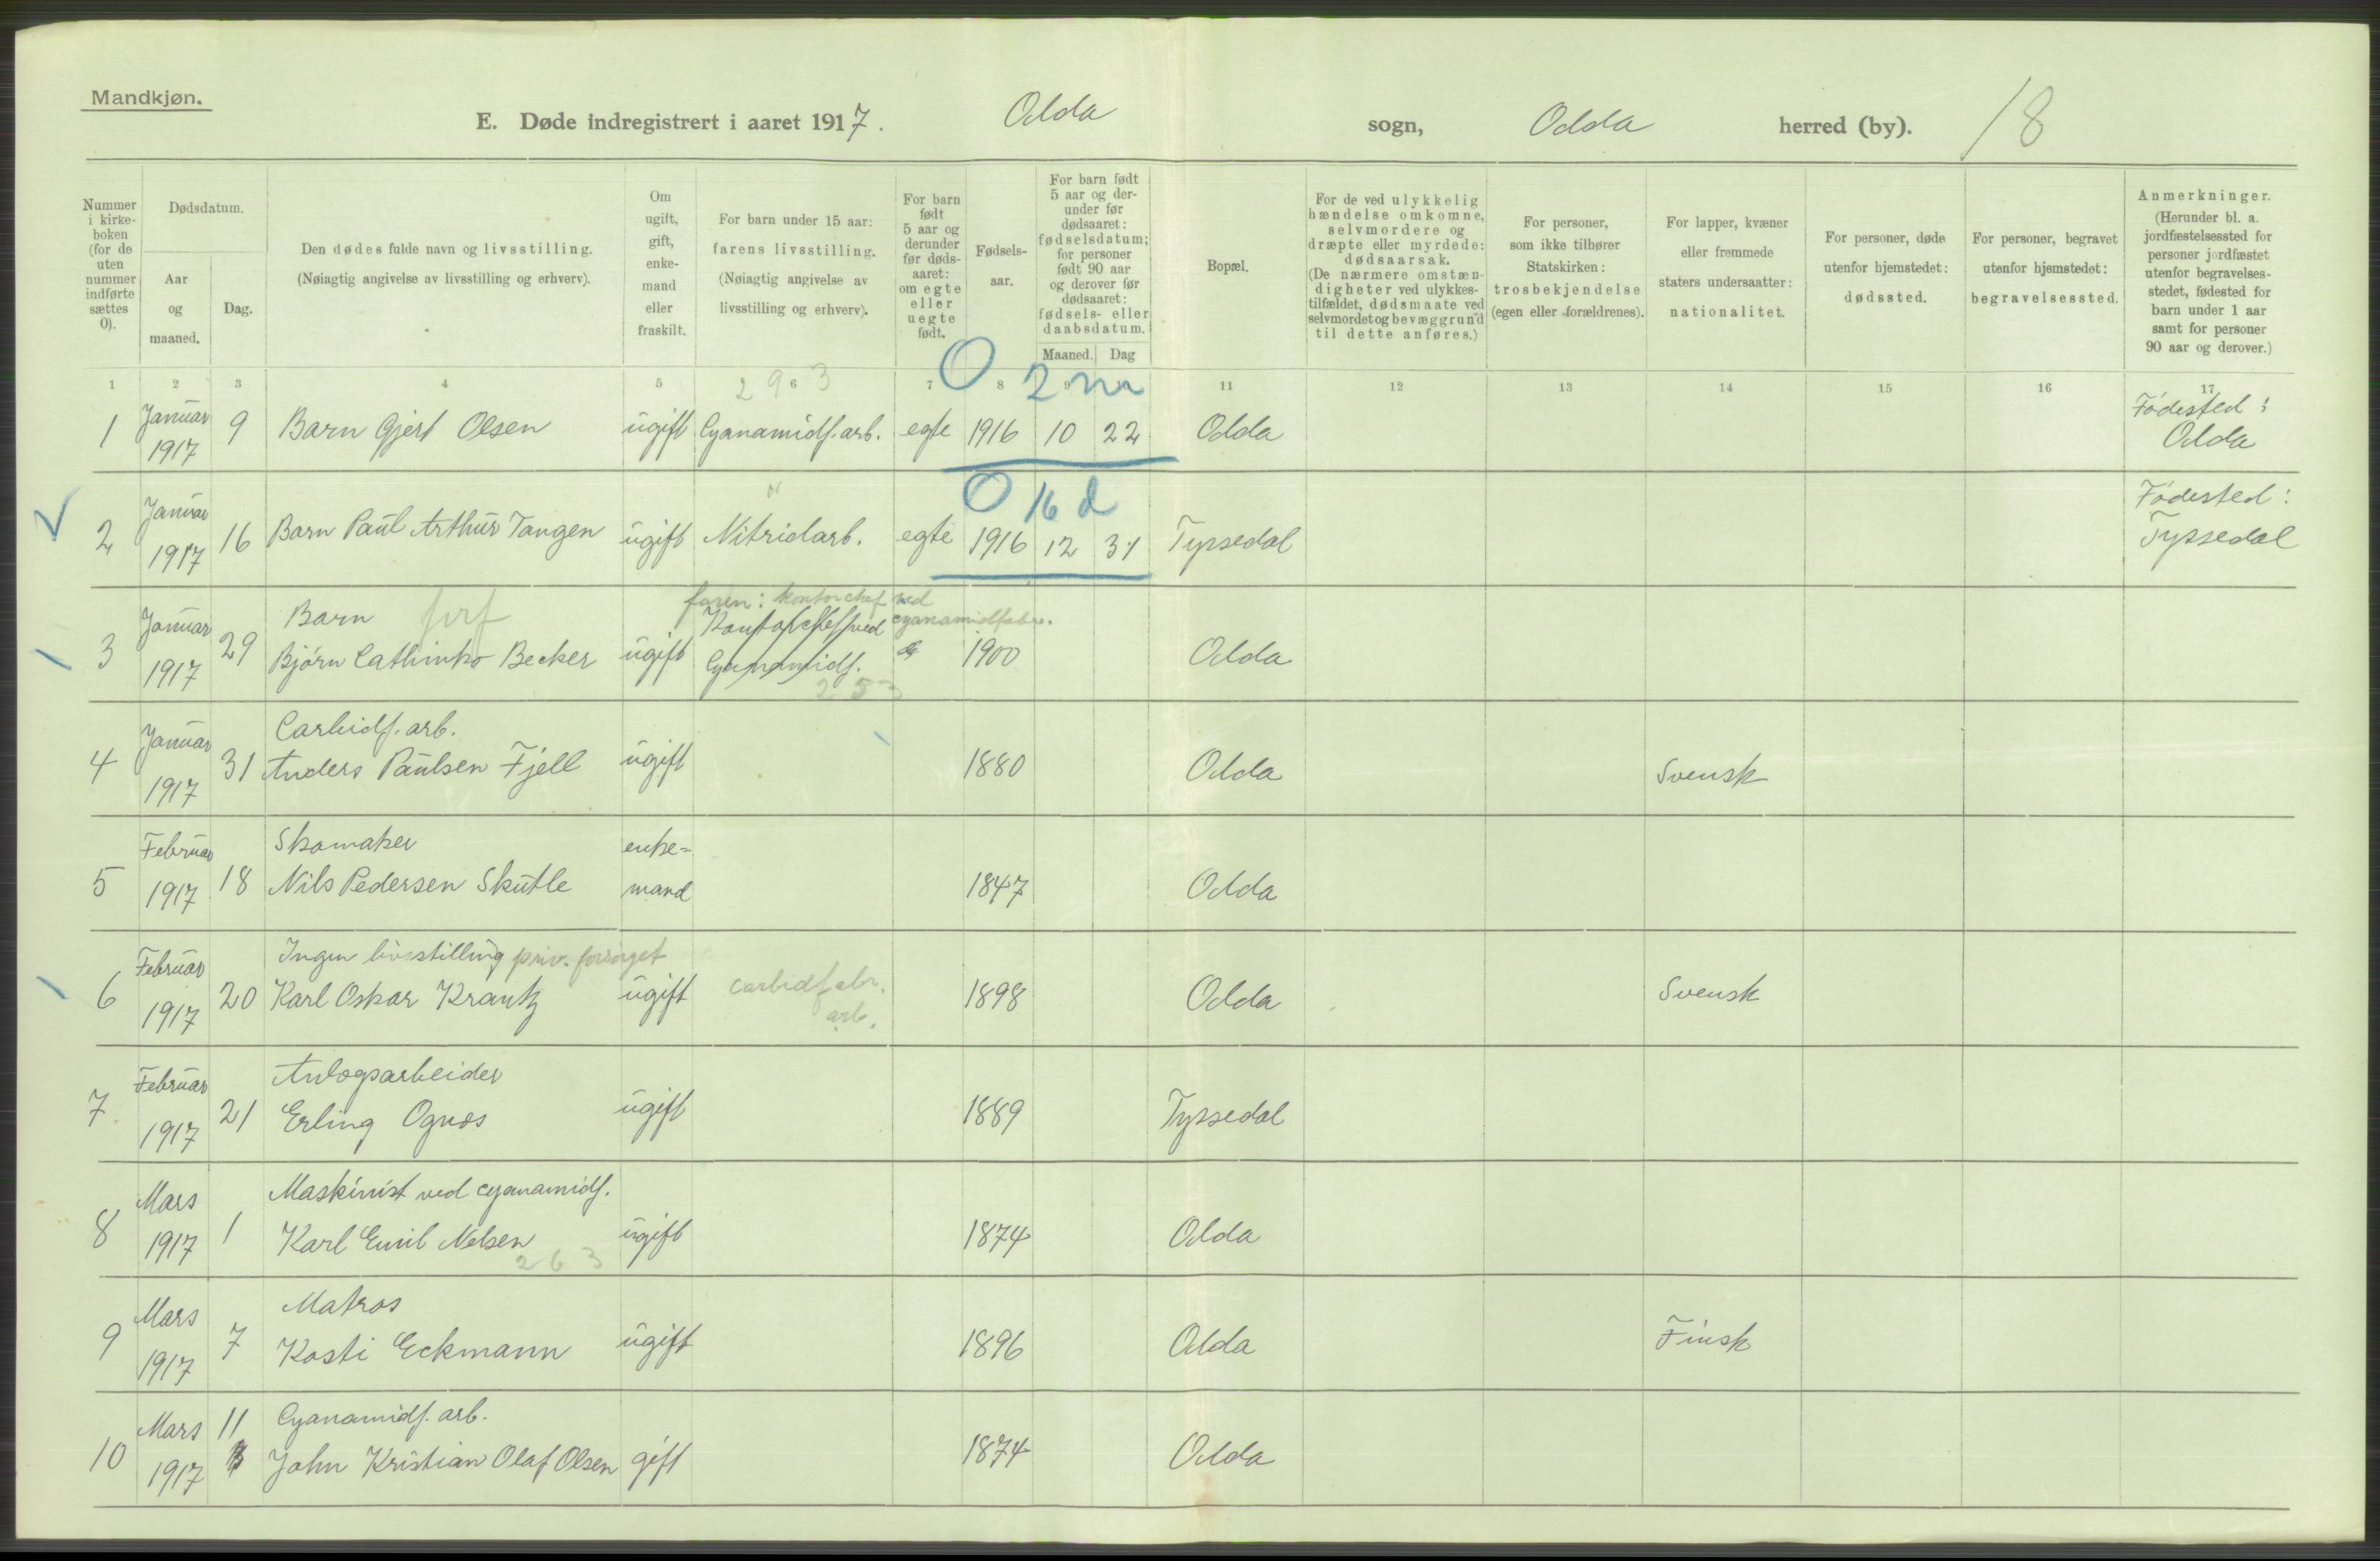 Mandkjøn.
E. Døde indregistrert i aaret 1917. Odda sogn, Odda herred (by). 18
Nummer i kirkeboken (for de uten nummer indførte sættes 0).
Dødsdatum.
Aar og maaned.
Dag.
Den dødes fulde navn og livsstilling.
(Nøiagtig angivelse av livsstilling og erhverv).
Om ugift, gift, enkemand eller fraskilt.
For barn under 15 aar:
farens livsstilling.
(Nøiagtig angivelse av livsstilling og erhverv).
For barn født 5 aar og derunder før dødsaaret: om egte eller uegte født.
Fødselsaar.
For barn født 5 aar og derunder før dødsaaret: fødselsdatum; for personer født 90 aar og derover før dødsaaret: fødsels- eller daabsdatum.
Maaned. Dag
Bopæl.
For de ved ulykkelig hændelse omkomne, selvmordere og dræpte eller myrdede: dødsaarsak.
(De nærmere omstændigheter ved ulykkestilfældet, dødsmaate ved selvmordet og bevæggrund til dette anføres.)
For personer, som ikke tilhører Statskirken: trosbekjendelse (egen eller forældrenes).
For lapper, kvæner eller fremmede staters undersaatter: nationalitet.
For personer, døde utenfor hjemstedet: dødssted.
For personer, begravet utenfor hjemstedet: begravelsessted.
Anmerkninger.
(Herunder bl. a. jordfæstelsessted for personer jordfæstet utenfor begravelsesstedet, fødested for barn under 1 aar samt for personer 90 aar og derover.)
1 2 3 4 5 6 7 8 9 11 12 13 14 15 16 17
2 9 3
0 2 m
1 Januar 1917 9 Barn Gjert Olsen ugift Cyanamidf. arb. egte 1916 10 22 Odda Fødested: Odda
0 16 d
2 Januar 1917 16 Barn Paul Arthur Tangen ugift Nitridarb. egte 1916 12 31 Tyssedal Fødested: Tyssedal
faren: kontorchef ved cyanamidfabr.
3 Januar 1917 29 Barn
Bjørn Cathinko Becker ugift Kontorchef ved Cyanamidf. 1900 Odda
2 5 3
4 Januar 1917 31 Carbidf. arb.
Anders Paulsen Fjell ugift 1880 Odda Svensk
5 Februar 1917 18 Skomaker
Nils Pedersen Skutle enke=mand 1847 Odda
6 Februar 1917 20 Ingen livsstilling priv. forsørget
Karl Oskar Krantz ugift carbidfabr. arb. 1898 Odda Svensk
7 Februar 1917 21 Anlegsarbeider
Erling Ognos ugift 1889 Tyssedal
8 Mars 1917 1 Maskinist ved cyanamidf.
Karl Emil Nelsen ugift 1874 Odda
2 6 3
9 Mars 1917 7 Matros
Kosti Eckmann ugift 1896 Odda Finsk
10 Mars 1917 11 Cyanamidf. arb.
John Kristian Olaf Olsen gift 1874 Odda